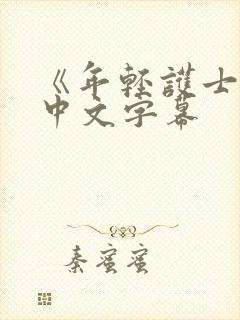 《年轻護士
中文字幕
秦蜜蜜